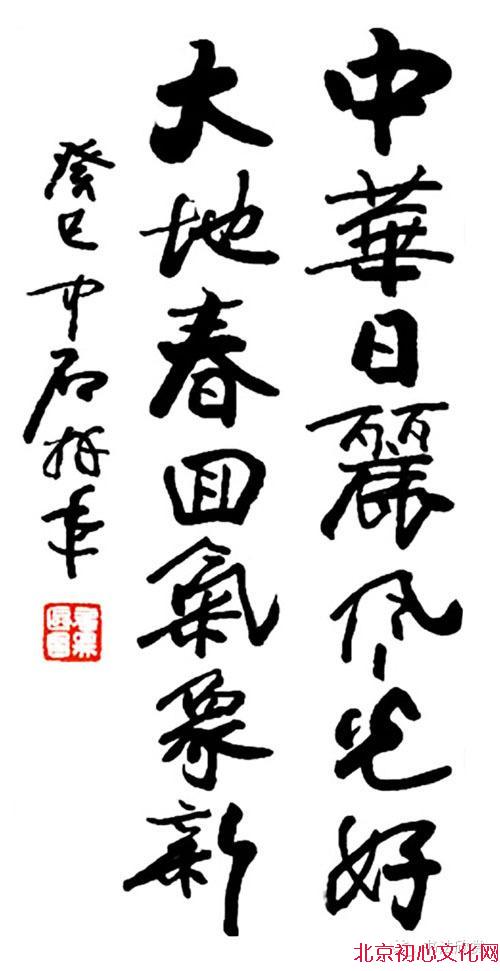 中華日麗風光好
大地春回氣象新
癸巳 中石拜筆
北京初心文化网